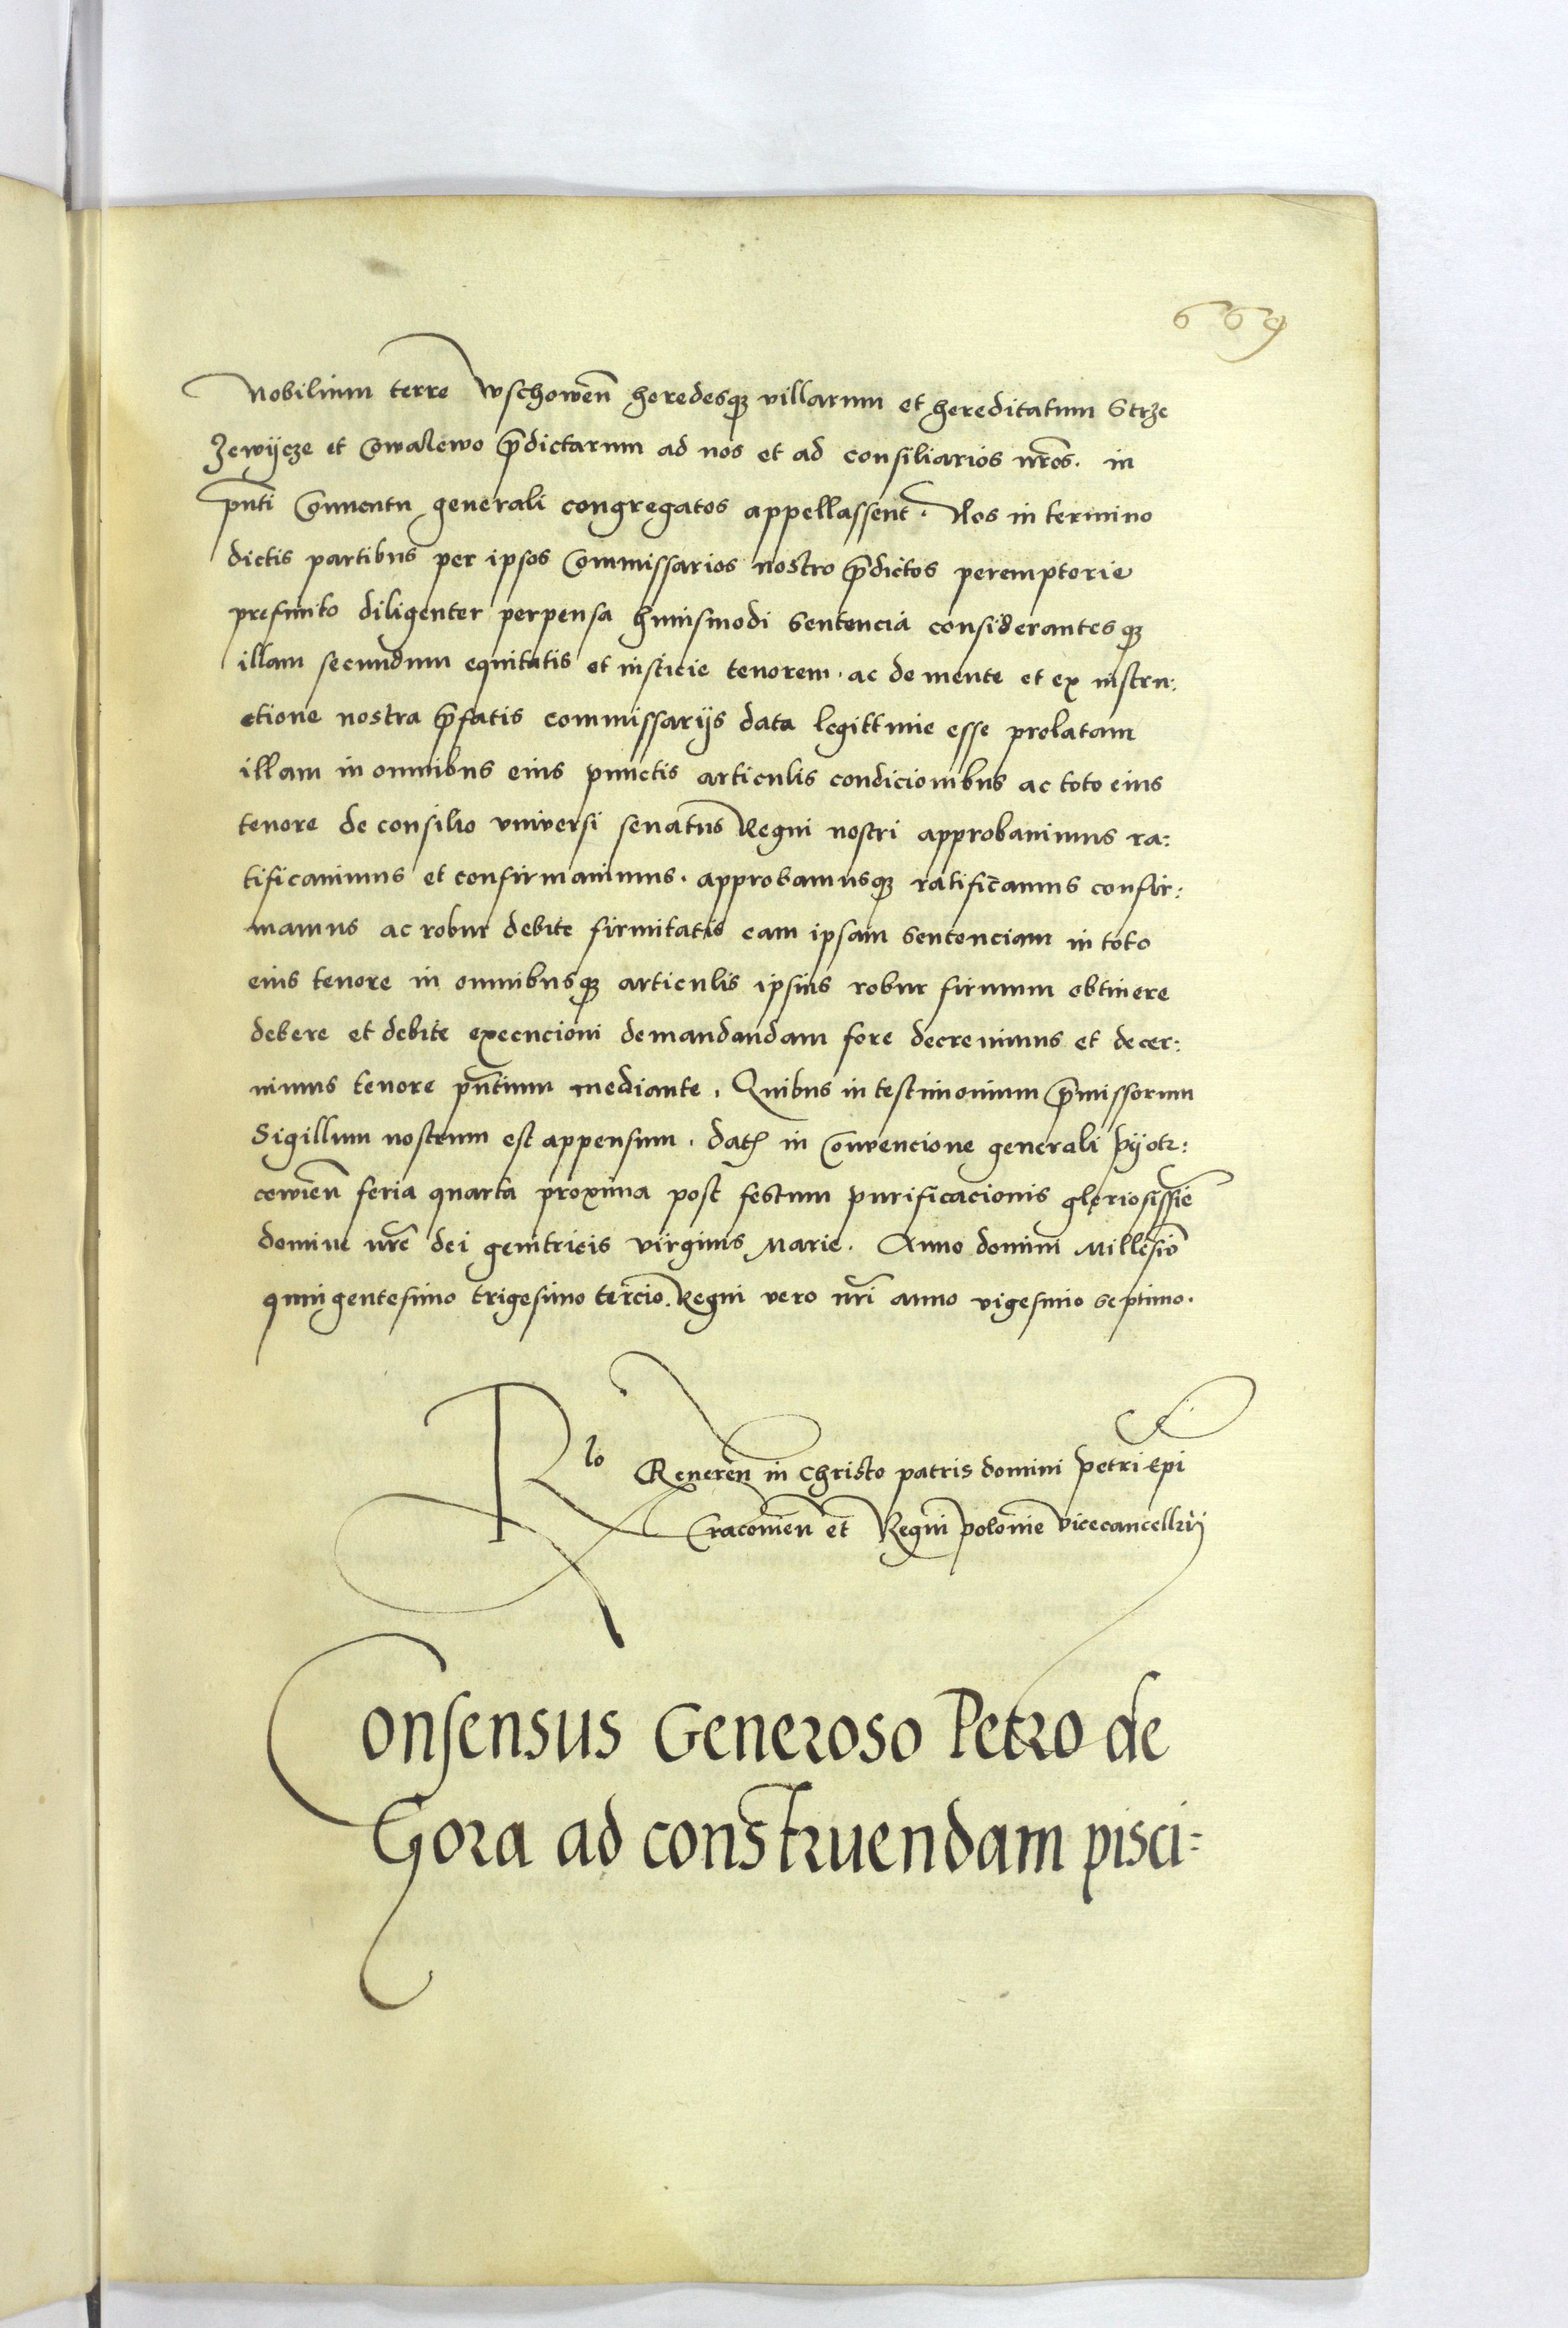 669
Nobilium terre Wschowen̄ heredesqȝ villarum et hereditatum Strze
Zewijcze et Cowalewo p̄dictarum ad nos et ad consiliarios nr̄os. in
pn̄ti Conuentu generali congregatos appellassent. Nos in termino
dictis partibus per ipsos Commissarios nostro p̄dictos peremptorie
prefinito diligenter perpensa huiusmodi Sentencia considerantesqȝ
illam secundum equitatis et iusticie tenorem. ac de mente et ex instru:
ctione nostra p̄fatis commissarijs data legittime esse prolatam
illam in omnibus eius punctis articulis condicionibus ac toto eius
tenore de consilio vniuersi senatus Regni nostri approbauimus ra:
tificauimus et confirmauimus. approbamusqȝ ratificamus confir:
mamus ac robur debite firmitatis eam ipsam Sentenciam in toto
eius tenore in omnibusqȝ articulis ipsius robur firmum obtinere
debere et debite execucioni demandandam fore decreuimus et decer:
nimus tenore pn̄tium mediante. Quibus in testimonium p̄missorum
Sigillum nostrum est appensum. Dat. in Conuencione generali Pijotr:
cowien̄ feria quarta proxima post festum purificacionis gloriosissie̅
domine nr̄e dei genitricis virginis Marie. Anno domini Millesio̅
quingentesimo trigesimo tercio. Regni vero nr̄i anno vigesimo septimo.
R^lo Reueren̄ in Christo patris domini Petri Ep̄i
Cracouien̄ et Regni polonie vicecancellarij
Consensus Generoso Petro de
Gora ad construendam pisci=